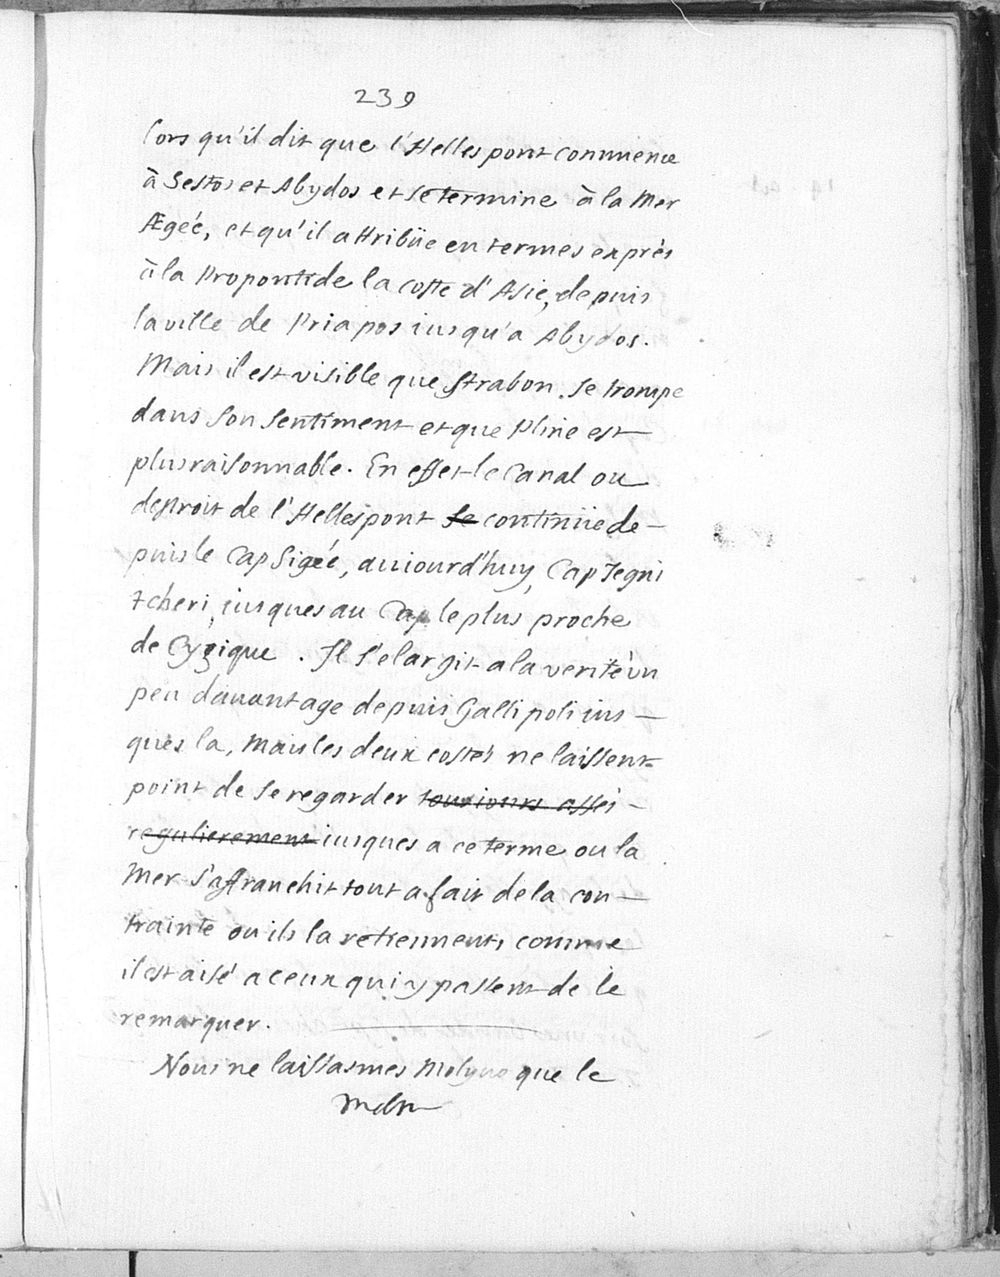 239
Lors qu'il dit que l'Hellespont commence
à Sestos et Abydos et se termine à la Mer
Ægée, et qu'il attribüe en termes exprés
à la Propontide la coste d'Asie, depuis
la ville de Priapos iusqu'a Abydos.
Mais il est visible que Strabon se trompe
dans son sentiment et que Pline est
plus raisonnable. En effet le Canal ou
destroit de l'Hellespont se continüe de-
puis le Cap Sigée, auiourd'huy, Cap Iegni
tcheri, iusques au Cap le plus proche
de Cyzique. Il s'elargit a la verité un
peu dauantage depuis Gallipoli ius-
ques la, Mais les deux costés ne laissent
point de se regarder tousiours assés
regulierement iusques a ce terme ou la
Mer s'affranchit tout a fait de la con-
trainte ou ils la retiennent, comme
il est aisé a ceux qui y passent de le
remarquer.
Nous ne laissasmes Molyuo que le